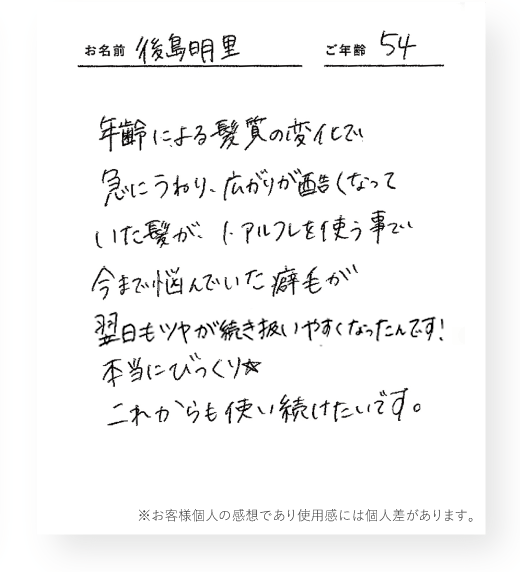 お名前 後島明里 ご年齢 54
年齢による髪質の変化で
急にうねり、広がりが酷くなって
いた髪が、トアルフレを使う事で
今まで悩んでいた癖毛が
翌日もツヤが続き扱いやすくなったんです!
本当にびっくり☆
これからも使い続けたいです。
※お客様個人の感想であり使用感には個人差があります。